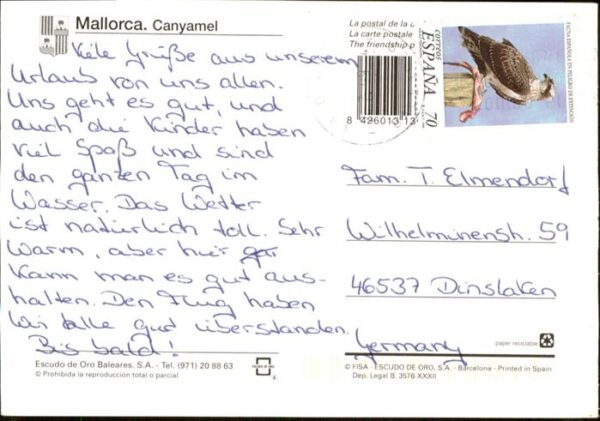 Mallorca. Canyamel
Viele Grüße aus unserem
Urlaub von uns allen.
Uns geht es gut, und
auch die Kinder haben
viel Spaß und sind
den ganzen Tag im
Wasser. Das Wetter
ist natürlich toll. Sehr
warm, aber hier
kann man es gut aus-
halten. Den Flug haben
wir alle gut überstanden.
Bis bald!
Escudo de Oro Baleares. S.A. - Tel. (971) 20 88 63
© Prohibida la reproducción total o parcial
La postal de la
La carte postale
The friendship p
8 426013 13
CORREOS
ESPAÑA
70
FAUNA ESPAÑOLA EN PELIGRO DE EXTINCIÓN
Fam. T. Elmendorf
Wilhelminenstr. 59
46537 Dinslaken
Germany
paper recyclable
© FISA - ESCUDO DE ORO, S.A. - Barcelona - Printed in Spain
Dep. Legal B. 3576-XXXII